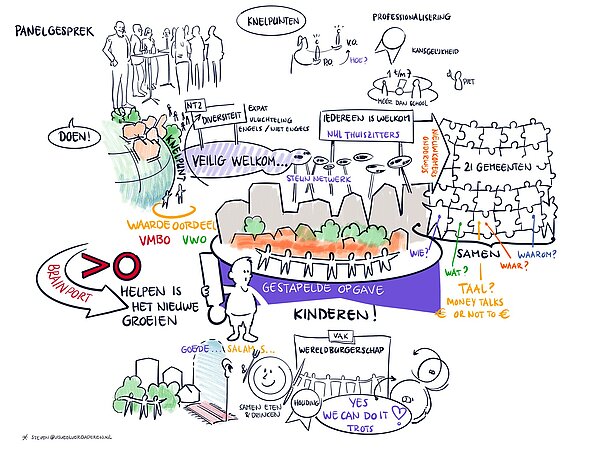 PANELGESPREK
KNELPUNTEN
V.O.
P.O.
HOE?
PROFESSIONALISERING
KANSGELIJKHEID
1 t/m 7
MEER DAN SCHOOL
PIET
DOEN!
KNELPUNT
NT2
DIVERSITEIT
EXPAT
VLUCHTELING
ENGELS / NIET ENGELS
VEILIG WELKOM...
IEDEREEN IS WELKOM
NUL THUISZITTERS
STEUN NETWERK
NIEUWKOMERS
21 GEMEENTEN
WAARDE OORDEEL
VMBO VWO
WIE?
WAT?
SAMEN
WAAR?
WAAROM?
TAAL?
MONEY TALKS
€ OR NOT TO €
BRAINPORT
> O
HELPEN IS
HET NIEUWE
GROEIEN
GESTAPELDE OPGAVE
KINDEREN!
GOEDE... SALAM S...
&
SAMEN ETEN
& DRINKEN
VAK
WERELDBURGERSCHAP
HOUDING
YES
WE CAN DO IT
TROTS